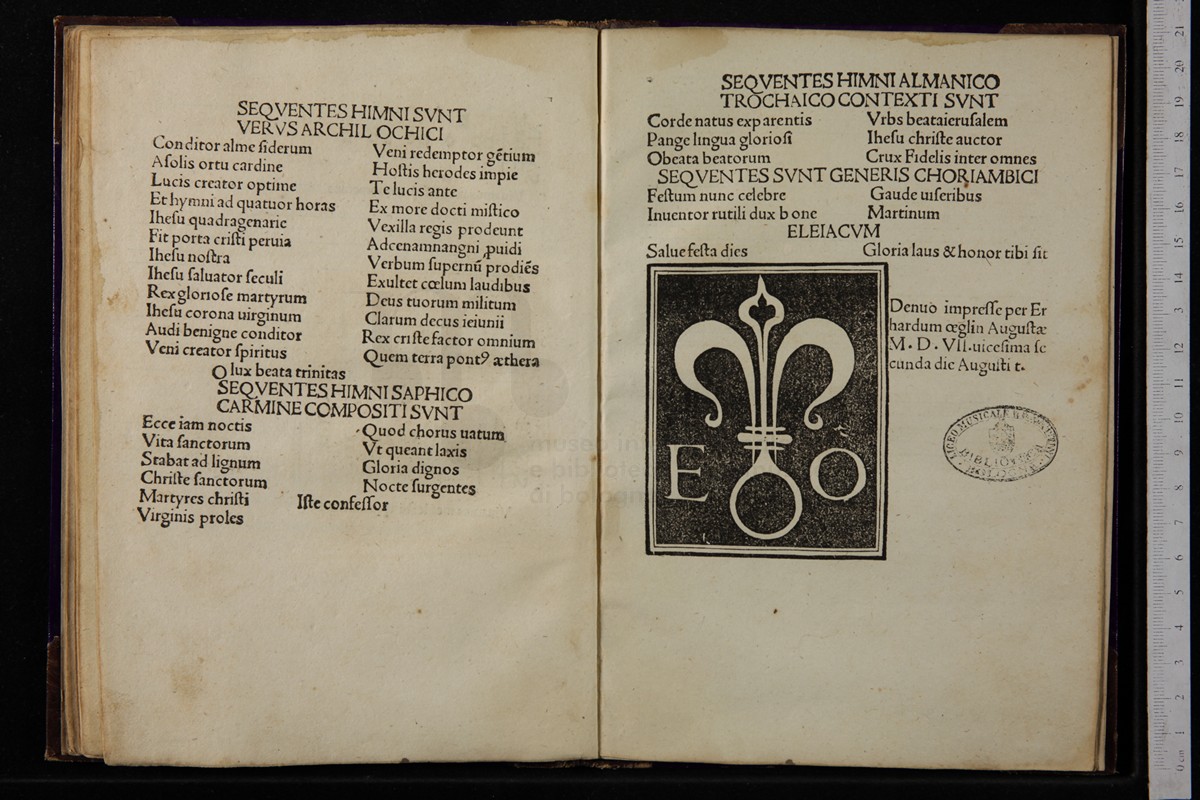 SEQVENTES HIMNI SVNT
VERVS ARCHIL OCHICI
Conditor alme siderum
Asolis ortu cardine
Lucis creator optime
Et hymni ad quatuor horas
Ihesu quadragenarie
Fit porta cristi peruia
Ihesu nostra
Ihesu saluator seculi
Rex gloriose martyrum
Ihesu corona uirginum
Audi benigne conditor
Veni creator spiritus
Veni redemptor gētium
Hostis herodes impie
Te lucis ante
Ex more docti mistico
Vexilla regis prodeunt
Adcenamnangni ꝓuidi
Verbum supernū prodiēs
Exultet cœlum laudibus
Deus tuorum militum
Clarum decus ieiunii
Rex criste factor omnium
Quem terra pontꝰ æthera
O lux beata trinitas
SEQVENTES HIMNI SAPHICO
CARMINE COMPOSITI SVNT
Ecce iam noctis
Vita sanctorum
Stabat ad lignum
Christe sanctorum
Martyres christi
Virginis proles
Quod chorus uatum
Vt queant laxis
Gloria dignos
Nocte surgentes
Iste confessor
SEQVENTES HIMNI ALMANICO
TROCHAICO CONTEXTI SVNT
Corde natus exparentis
Pange lingua gloriosi
Obeata beatorum
Vrbs beataierusalem
Ihesu christe auctor
Crux Fidelis inter omnes
SEQVENTES SVNT GENERIS CHORIAMBICI
Festum nunc celebre
Inuentor rutili dux b one
Gaude uiseribus
Martinum
ELEIACVM
Salue festa dies
Gloria laus & honor tibi sit
E O
Denuo impresse per Er
hardum œglin Augustæ
M . D . VII . uicesima se
cunda die Augusti t.
LICEO MUSICALE
BIBLIOTECA
BOLOGNA
museo int
e bibliote
di bologna